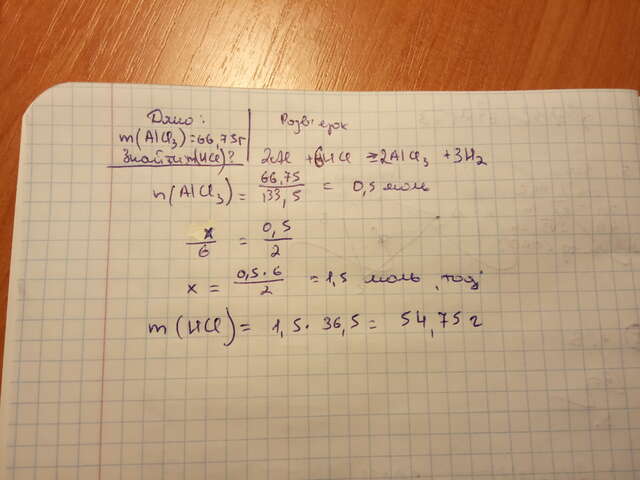 Дано:
m(AlCl₃)=66,75г
Знайти m(HCl)?
Розв'язок
2Al + 6HCl = 2AlCl₃ + 3H₂
n(AlCl₃) = 66,75 / 133,5 = 0,5 моль
x / 6 = 0,5 / 2
x = 0,5·6 / 2 = 1,5 моль, тоді
m(HCl) = 1,5 · 36,5 = 54,75 г